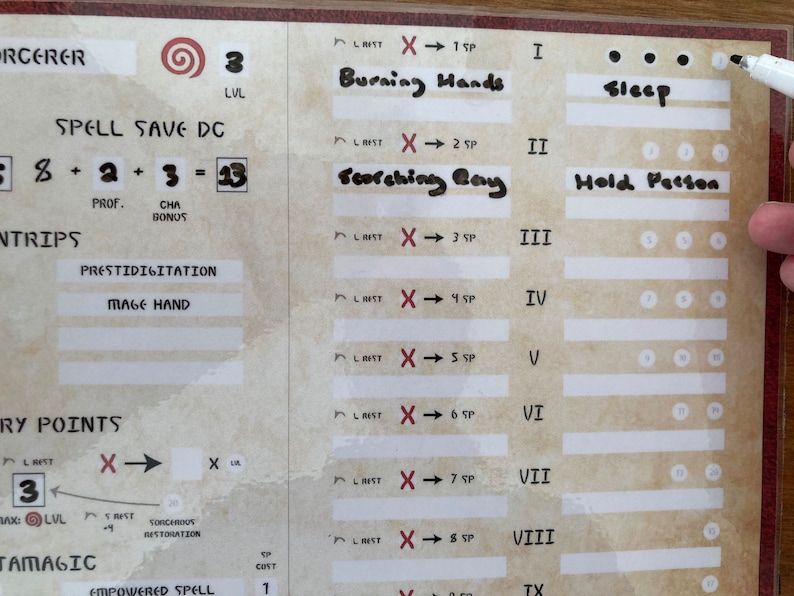 ORCERER
3
LVL
SPELL SAVE DC
8 + 2 + 3 = 13
PROF.
CHA BONUS
NTRIPS
PRESTIDIGITATION
MAGE HAND
RY POINTS
L REST X → X LVL
3
MAX: LVL
S REST
-4
20
SORCEROUS
RESTORATION
TAMAGIC
SP
COST
EMPOWERED SPELL 1
L REST X → 1 SP I
Burning Hands Sleep
L REST X → 2 SP II 3 3 4
Scorching Ray Hold Person
L REST X → 3 SP III 5 5 6
L REST X → 4 SP IV 7 8 9
L REST X → 5 SP V 9 10 18
L REST X → 6 SP VI 11 19
L REST X → 7 SP VII 13 20
L REST X → 8 SP VIII 15
IX 17